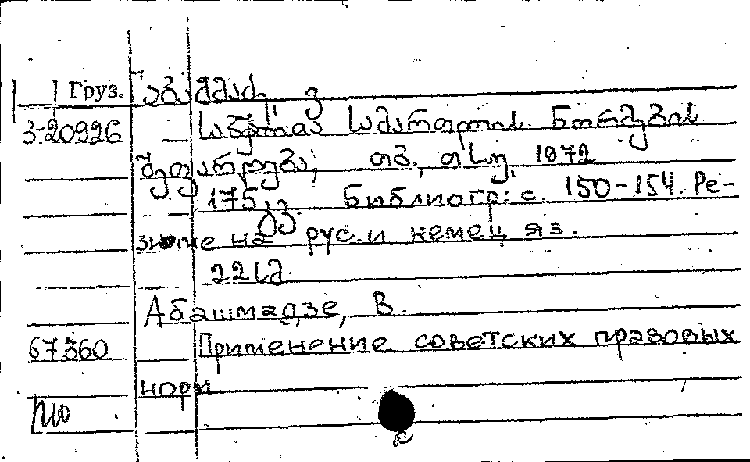 Груз. აბაშმაძე, ვ
3-20926 საბჭოთა სამართლის ნორმების
შეფარდება, თბ., თსუ, 1972
175 გვ. Библиогр: с. 150-154. Ре-
зюме на рус. и немец яз.
22 სმ
Абашмадзе, В.
67360 Применение советских правовых
норм